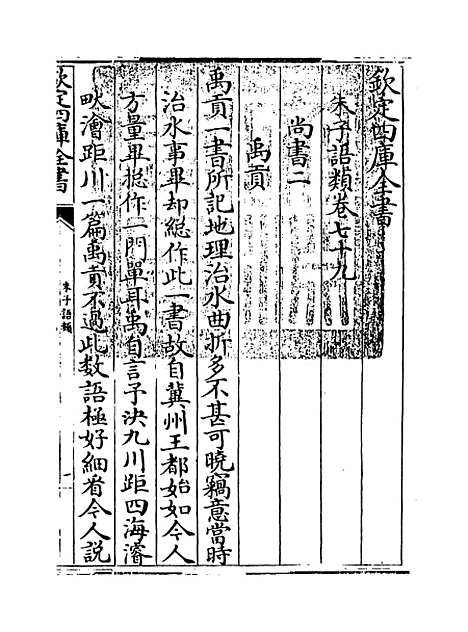 欽定四庫全書
朱子語類卷七十九
尚書二
禹貢
禹貢一書所記地理治水曲折多不甚可曉竊意當時
治水事畢却總作此一書故自冀州王都始如今人
方量畢總作一門單耳禹自言予決九川距四海濬
畎澮距川一篇禹貢不過此數語極好細看今人説
欽定四庫全書
朱子語類
一